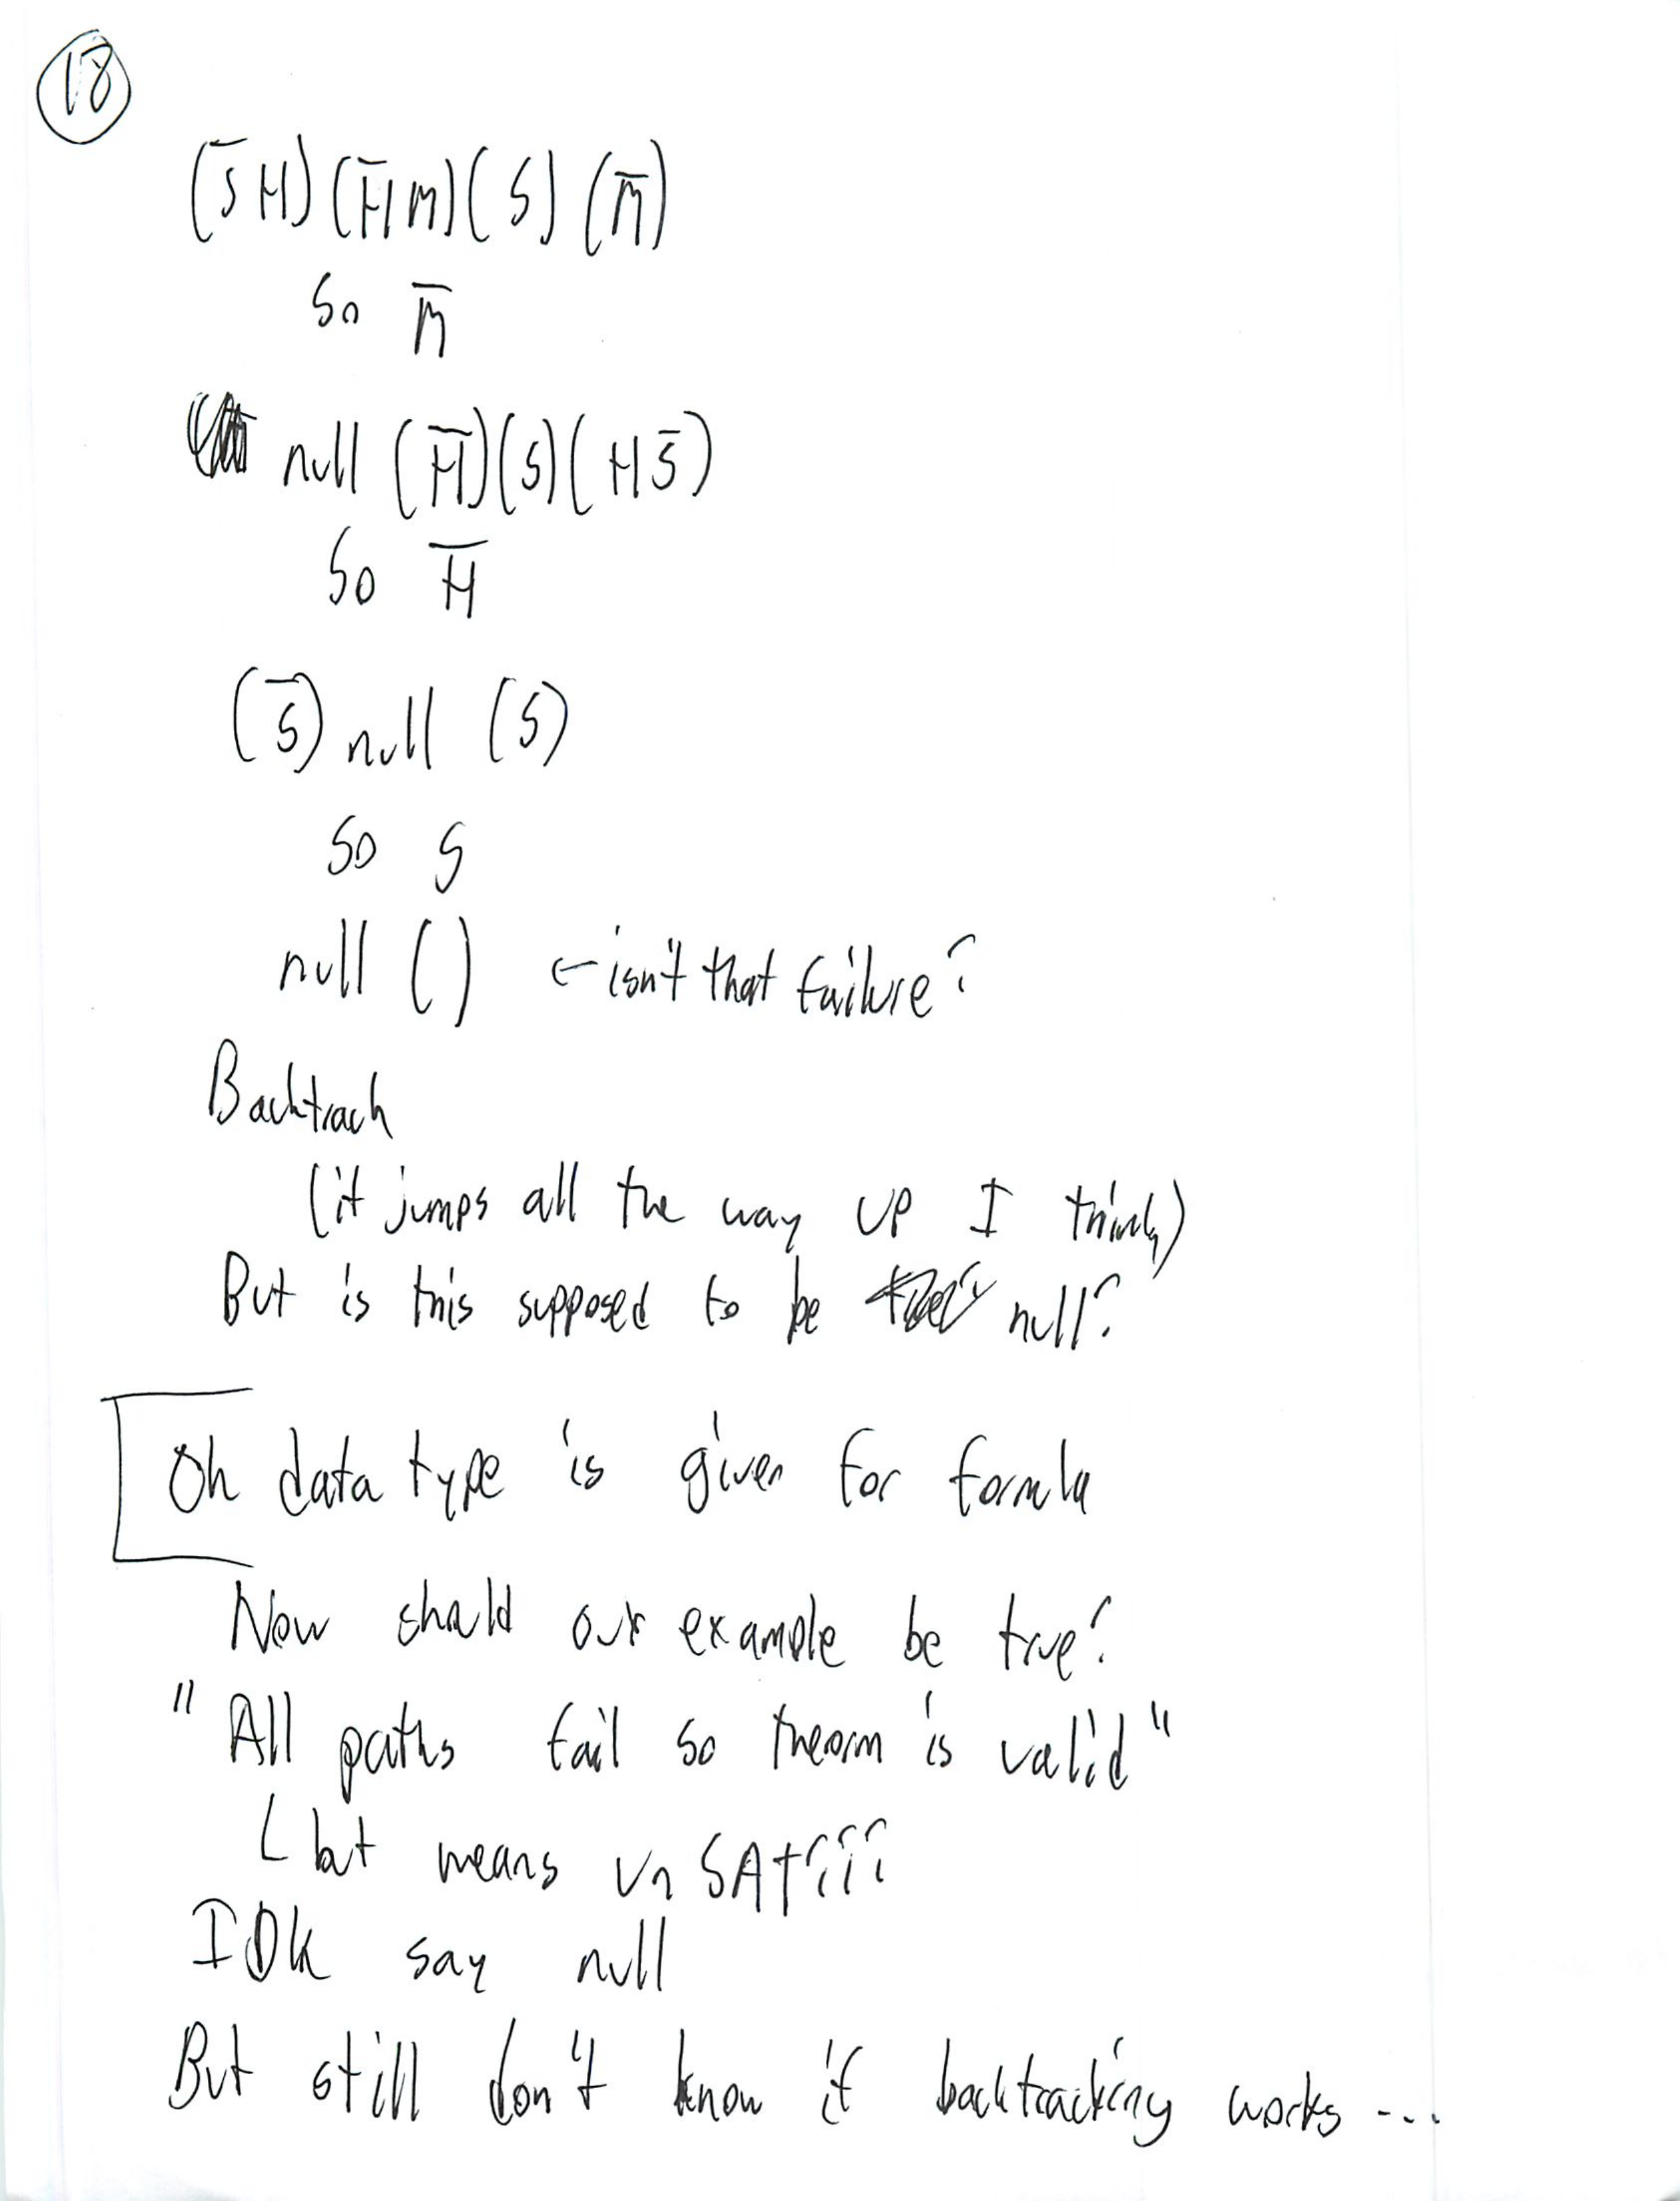 18
(S̅ H) (H̅ M) (S) (M̅)
So M̅
null (H̅) (S) (H S̅)
So H̅
(S̅) null (S)
So S
null () ← isn't that failure?
Backtrack
(it jumps all the way up I think)
But is this supposed to be null?
Oh data type is given for formula
Now should our example be true?
"All paths fail so theorm is valid"
but means UnSAT???
IDK say null
But still don't know if backtracking works ...